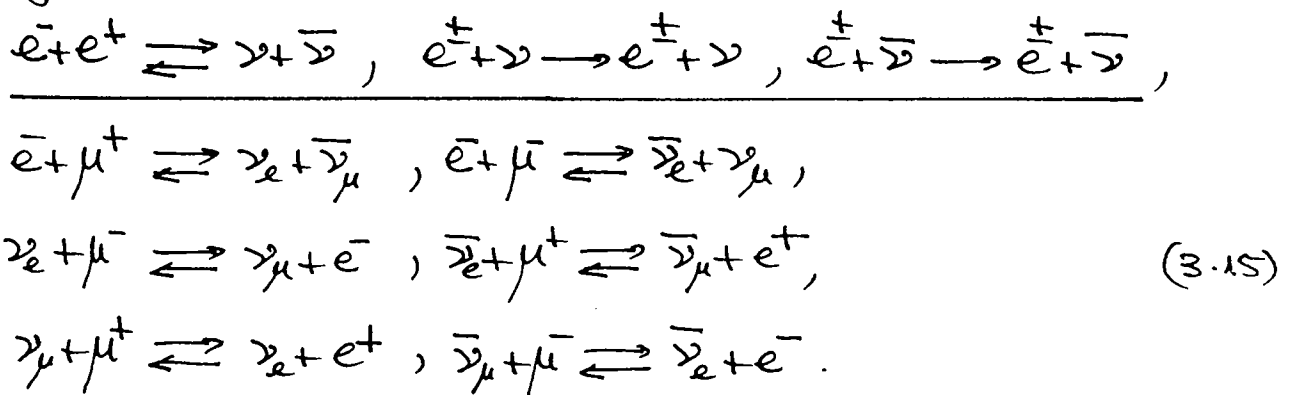 e⁻+e⁺ ⇄ ν+ν̄ , e^±+ν → e^±+ν , e^±+ν̄ → e^±+ν̄ ,
e⁻+μ⁺ ⇄ ν_e+ν̄_μ , e⁻+μ⁻ ⇄ ν̄_e+ν_μ ,
ν_e+μ⁻ ⇄ ν_μ+e⁻ , ν̄_e+μ⁺ ⇄ ν̄_μ+e⁺, (3.15)
ν_μ+μ⁺ ⇄ ν_e+e⁺ , ν̄_μ+μ⁻ ⇄ ν̄_e+e⁻ .